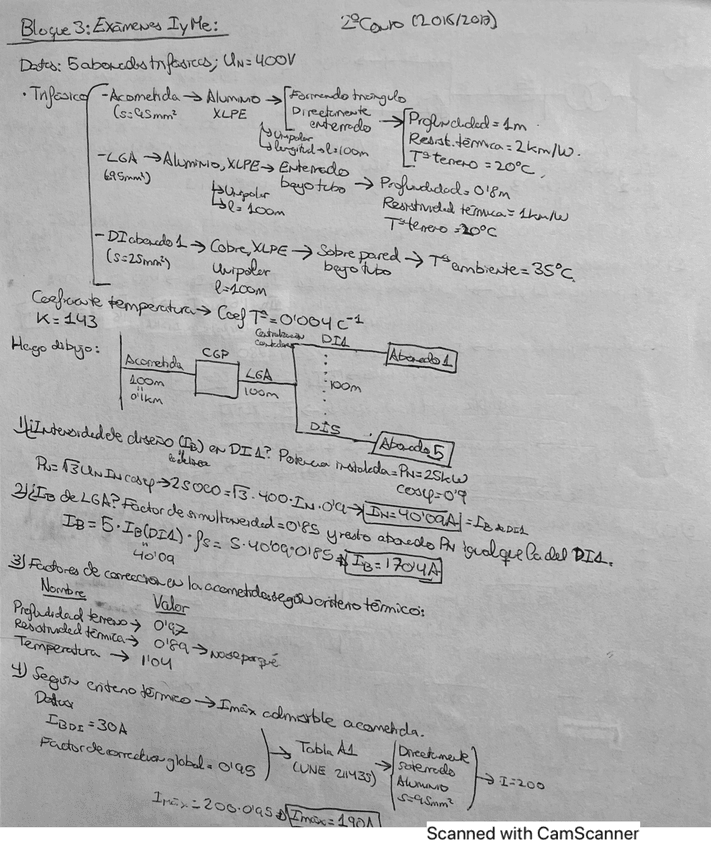 Bloque 3: Exámenes IyMe:
2º Curso (2016/2017)
Datos: 5 abonados trifásicos; UN = 400V
· Trifásico
- Acometida → Aluminio XLPE → Formando triángulo
(s=95mm²
Directamente enterrado → Profundidad = 1m
↳ Unipolar
↳ longitud → l=100m
Resist. térmica = 2km/W.
Tª terreno = 20ºC.
- LGA → Aluminio, XLPE → Enterrado bajo tubo → Profundidad = 0'8m
(95mm²)
↳ Unipolar
↳ l = 100m
Resistividad térmica = 1km/W
Tª terreno = 20ºC
- DI abonado 1 → Cobre, XLPE → Sobre pared bajo tubo → Tª ambiente = 35ºC
(s=25mm²)
Unipolar
l=100m
Coeficiente temperatura → Coef Tª = 0'004 C⁻¹
K = 143
Hago dibujo:
Acometida
100m
0'1km
CGP
LGA
100m
Centralización contadores
DI1
100m
DI5
Abonado 1
Abonado 5
1) ¿Intensidad de diseño (IB) en DI1? Potencia instalada = PN = 25kW
cosφ = 0'9
PN = √3 UN IN cosφ → 25000 = √3 · 400 · IN · 0'9 → IN = 40'09A = IB de DI1
2) ¿IB de LGA? Factor de simultaneidad = 0'85 y resto abonado PN igual que la del DI1.
IB = 5 · IB(DI1) · fs = 5 · 40'09 · 0'85 → IB = 170'4A
40'09
3) Factores de corrección en la acometida según criterio térmico:
Nombre Valor
Profundidad terreno → 0'97
Resistividad térmica → 0'89 → No se por qué
Temperatura → 1'04
4) Según criterio térmico → Imáx admisible acometida.
Datos
IB DI = 30A
Factor de corrección global = 0'95
→ Tabla A1
(UNE 211435)
→ Directamente soterrado
Aluminio
s=95mm²
→ I = 200
Imáx = 200 · 0'95 → Imáx = 190A
Scanned with CamScanner